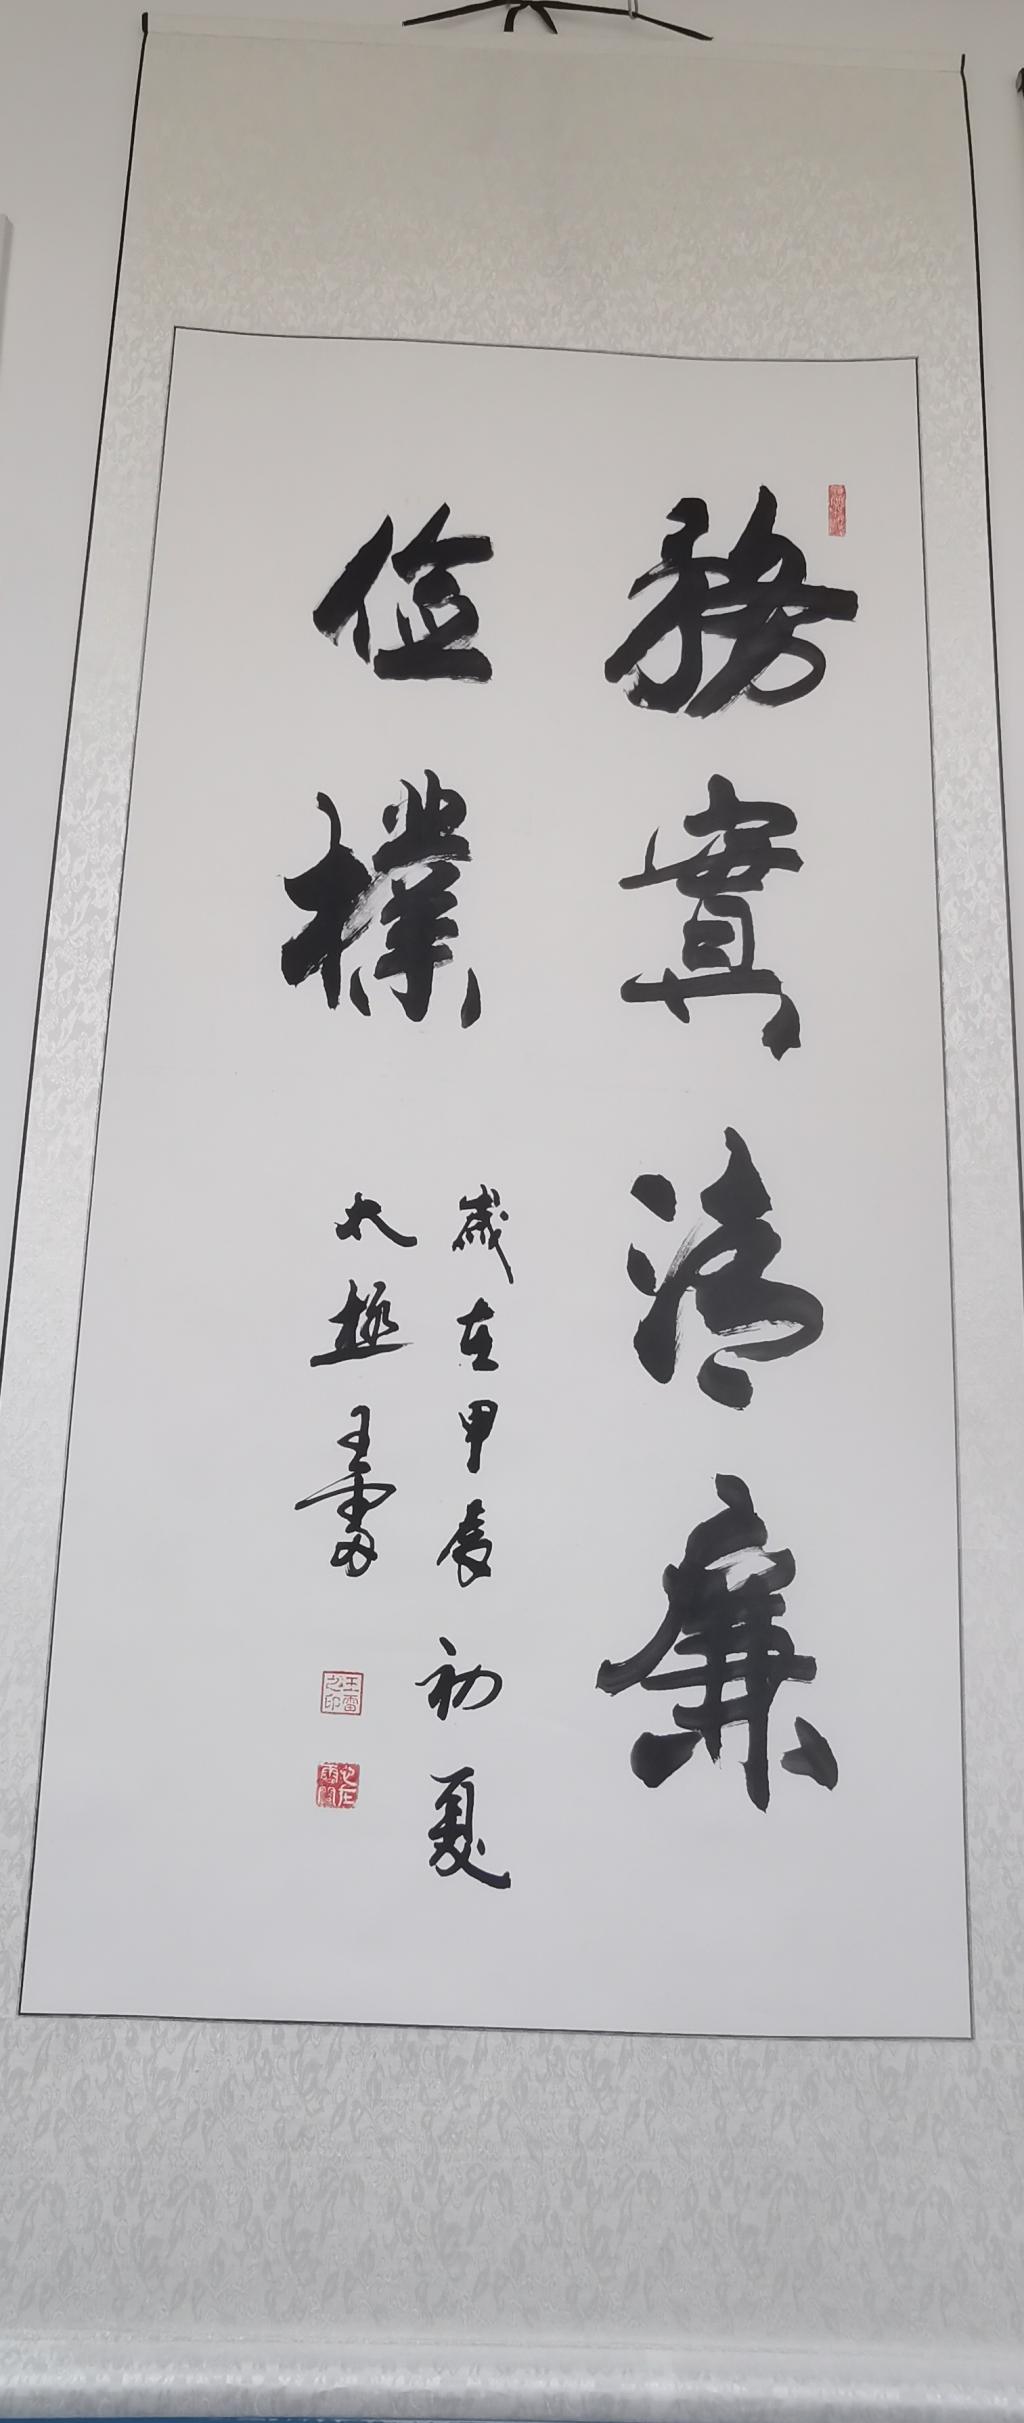 務實清廉
儉樸
歲在甲辰初夏
太極王雷
王雷之印